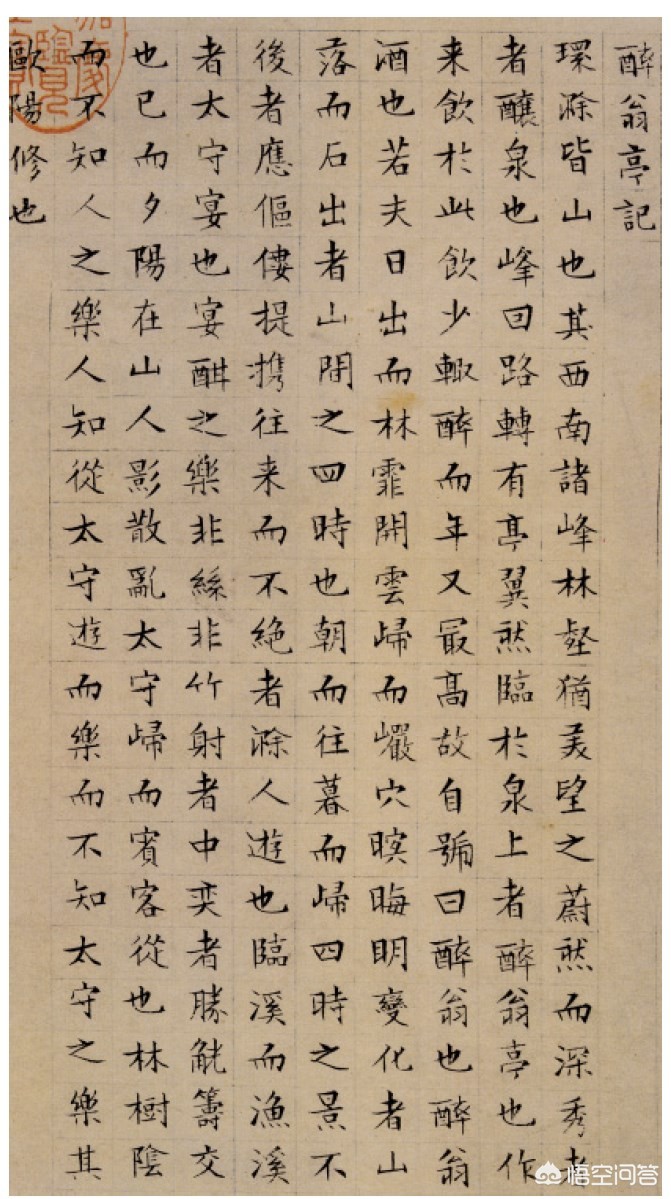 醉翁亭記
環滁皆山也其西南諸峰林壑猶美望之蔚然而深秀者
者釀泉也峰回路轉有亭翼然臨於泉上者醉翁亭也作
来飲於此飲少輙醉而年又最髙故自號曰醉翁也醉翁
酒也若夫日出而林霏開雲歸而巖穴暝晦明變化者山
落而石出者山間之四時也朝而往暮而歸四時之景不
後者應傴僂提携往来而不絶者滁人遊也臨溪而漁溪
者太守宴也宴酣之樂非絲非竹射者中奕者勝觥籌交
也已而夕陽在山人影散亂太守歸而賓客從也林樹陰
而不知人之樂人知從太守遊而樂而不知太守之樂其
歐陽修也
悟空问答